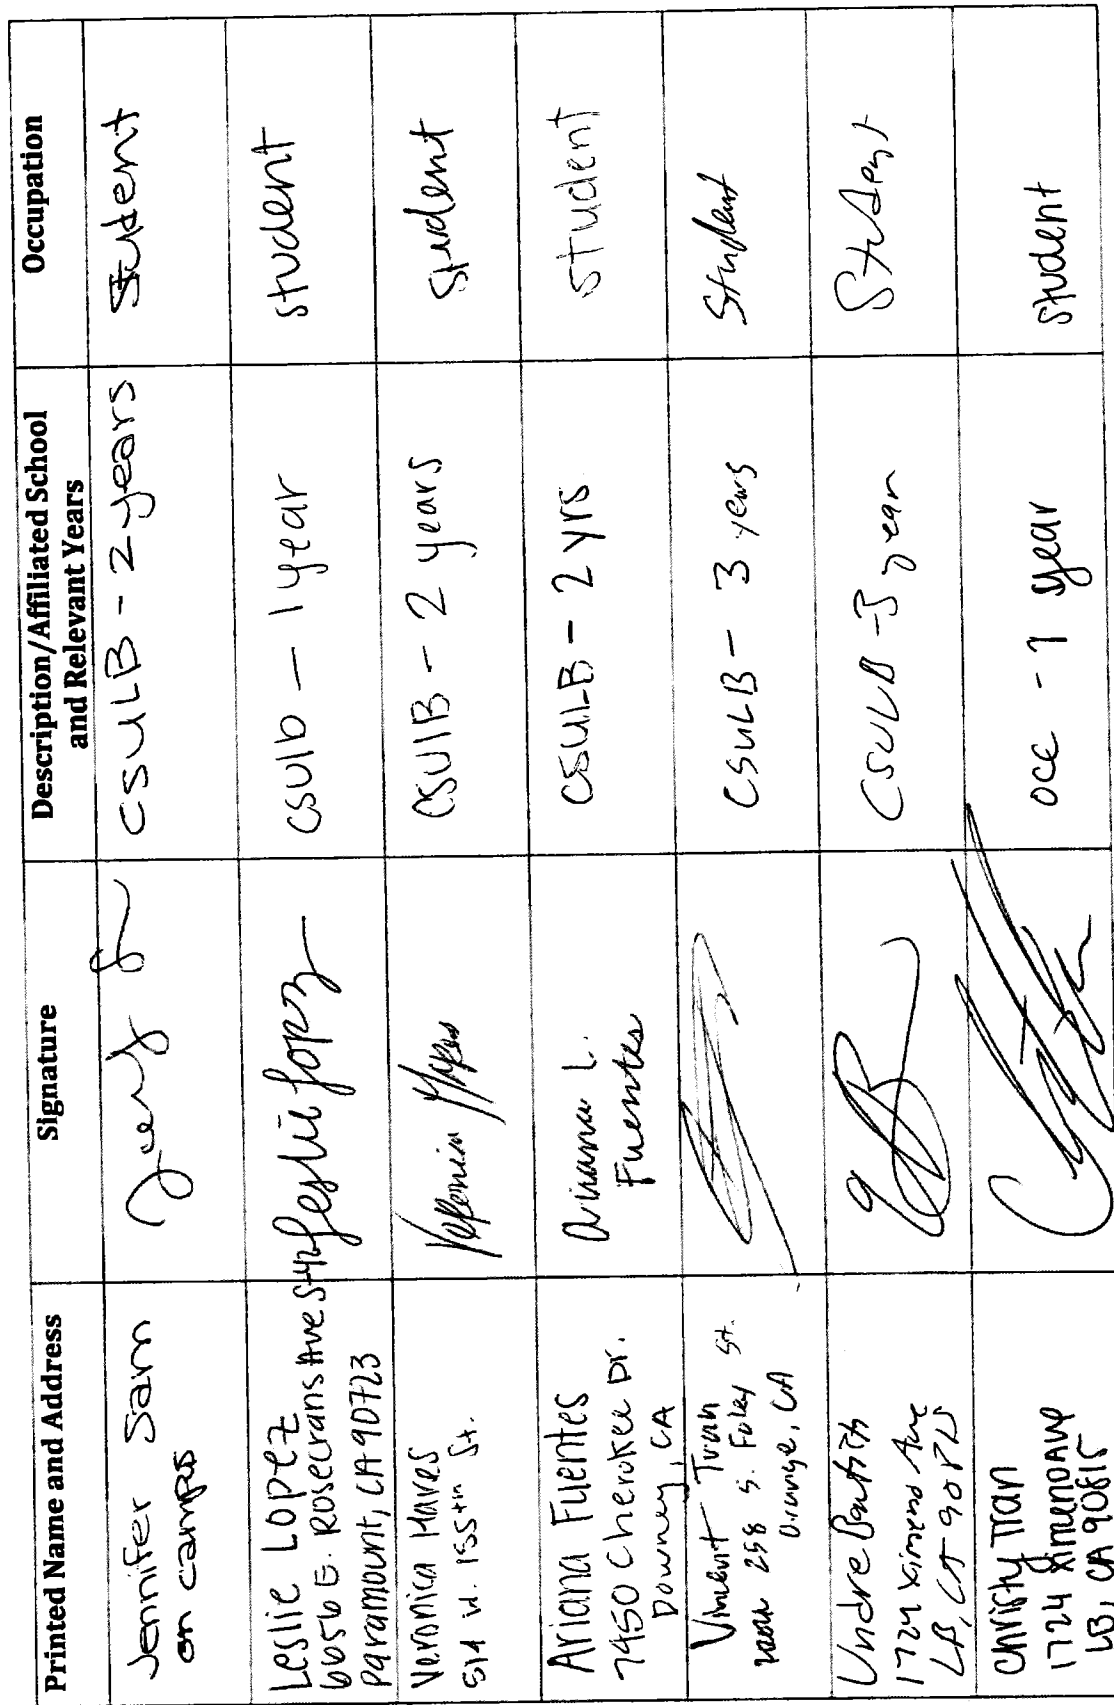 Printed Name and Address
Signature
Description/Affiliated School
and Relevant Years
Occupation
Jennifer Sam
on campus
CSULB - 2 years
Student
Leslie Lopez
6656 E. Rosecrans Ave
Paramount, CA 90723
Leslie Lopez
csulb - 1 year
student
Veronica Mares
514 W. 155th St.
Veronica Mares
CSULB - 2 years
Student
Ariana Fuentes
7450 Cherokee Dr.
Downey, CA
Ariana L.
Fuentes
CSULB - 2 yrs
student
Vincent Tran
258 S. Foley St.
Orange, CA
CSULB - 3 years
Student
1724 Ximeno Ave
LB, CA
CSULB - 3 year
Student
Christy Tran
1724 Ximeno Ave
LB, CA 90815
OCC - 1 year
student